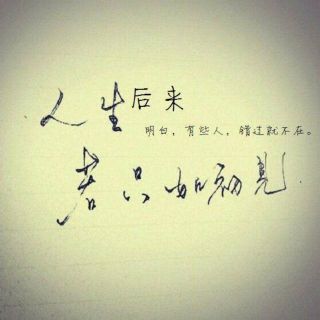 人生后来
明白，有些人，错过就不在。
若只如初见